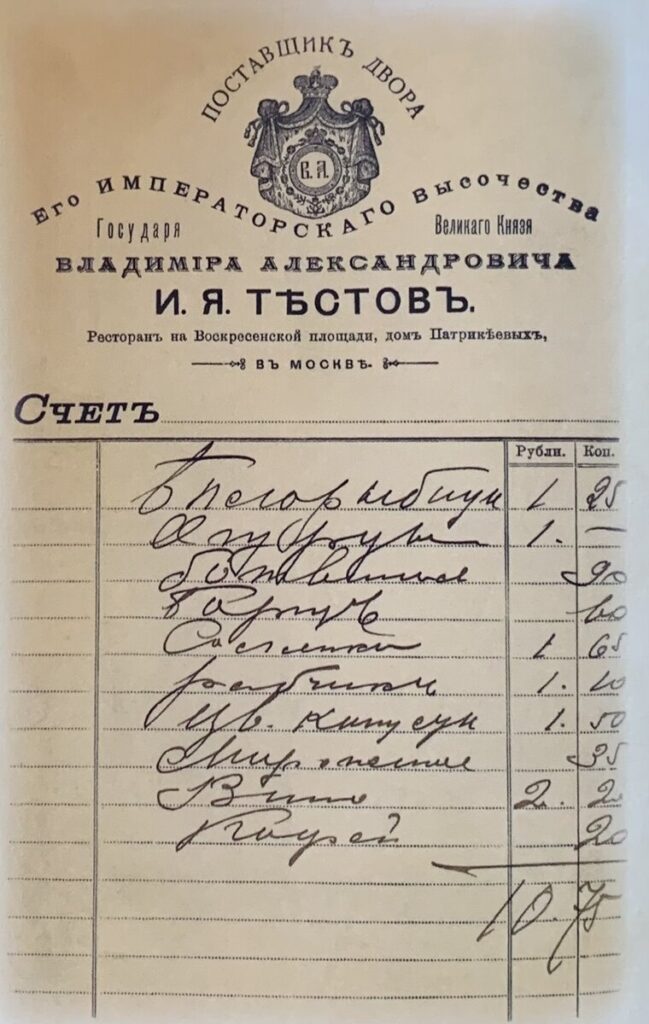 ПОСТАВЩИКЪ ДВОРА
В. А.
Его ИМПЕРАТОРСКАГО Высочества
Государя Великаго Князя
ВЛАДИМІРА АЛЕКСАНДРОВИЧА
И. Я. ТѢСТОВЪ.
Ресторанъ на Воскресенской площади, домъ Патрикѣевыхъ,
ВЪ МОСКВѢ.
Счетъ
Рубли. Коп.
1 25
Огурцы 1. —
ботвинье 90
60
1 65
рябчики 1. 10
Цв. капусты 1. 50
Мороженое 35
Вино 2. 20
Кофей 20
10.75